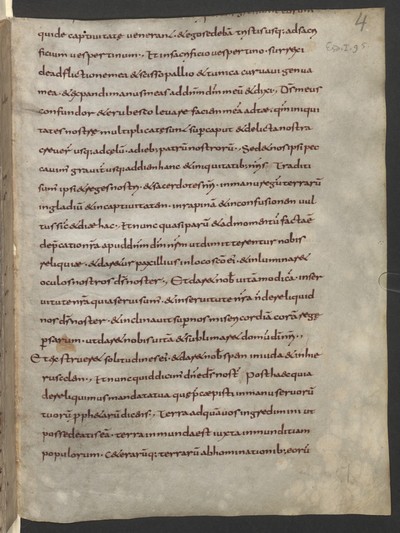 4
quide captivitate venerant. & ego sedebam tristis usq; ad sacri
ficium vespertinum. Et in sacrificio vespertino surrexi
de adflictione mea & scisso pallio & tunica curvavi genua
mea. & expandi manus meas ad dnm dm meu & dixi. Ds meus
confundor & erubesco levare faciem mea ad te. qm iniqui
tates nostre multiplicate sunt sup caput & delicta nostra
creverunt usq; ad celu. a dieb; patru nostroru. Sed & nos ipsi pec
cavim gravit usq; ad diem hanc & in iniquitatib; nris Traditi
sum ipsi & reges nostri & sacerdotes nri. in manu regu terraru
in gladiu & in captivitatem. in rapina & in confusionem vul
tus sic & die hac. Et nunc quasi paru & ad momentu facta e
depcatio nra apud dnm dm nrm ut dimitterentur nobis
reliquiae. & daretur paxillus in loco sco ei. & inluminaret
oculos nostros ds noster. Et daret nob vita modica. in ser
vitute nra quia servi sum. & in servitute nra n dereliquid
nos ds noster. & inclinavit sup nos miscdia cora rege
psarum. ut daret nobis vita & sublimaret domu di nri.
Et extrueret solitudines ei. & daret nob spem in iuda & in hie
rusalem. Et nunc quid dicim dne ds nost Post haec quia
dereliquimus mandata tua que pcepisti in manu servoru
tuoru pphetaru dicens. Terra ad qua vos ingredimini ut
possideatis ea. terra inmunda est iuxta inmunditiam
populorum. ceterarumq; terraru abhominationib; eoru